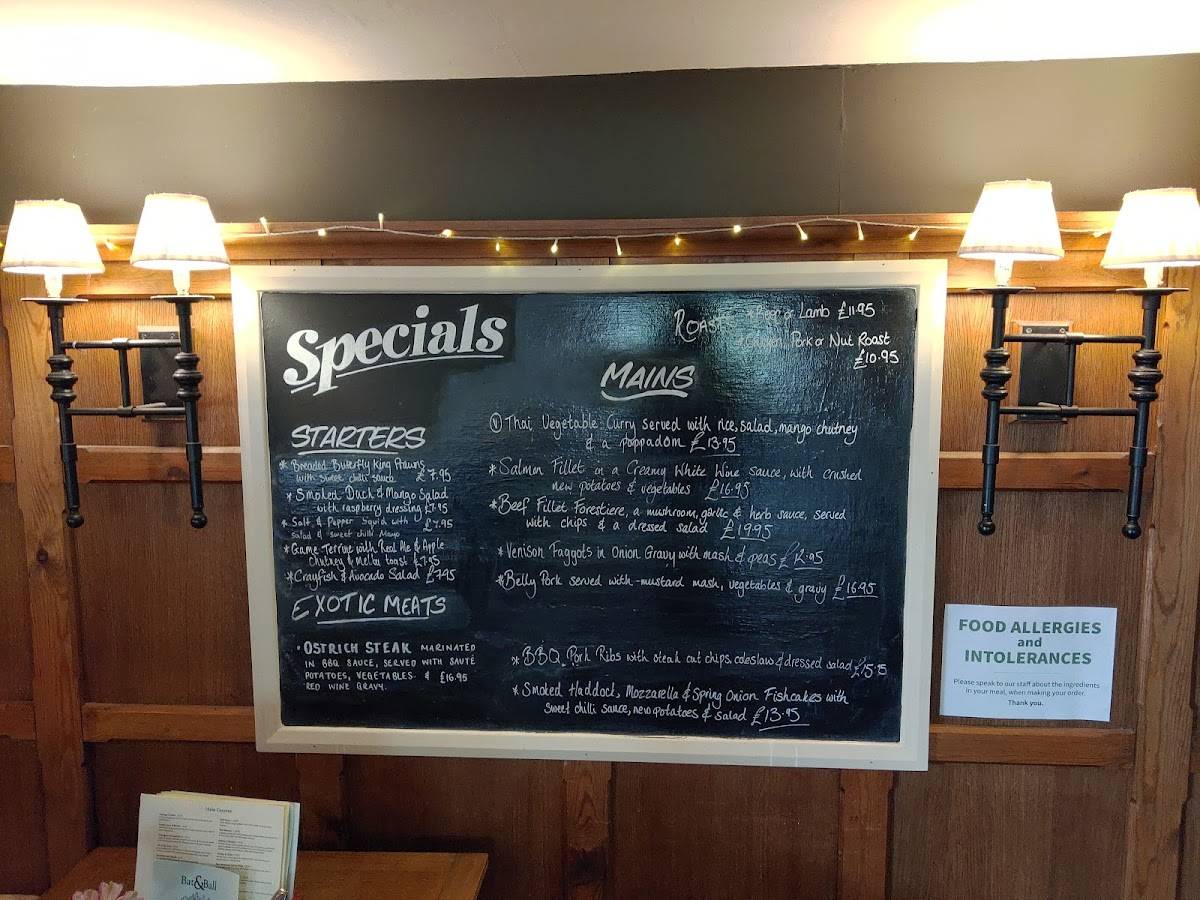 Specials
STARTERS
* Breaded Butterfly King Prawns
with sweet chilli sauce £7.95
* Smoked Duck & Mango Salad
with raspberry dressing £7.95
* Salt & Pepper Squid with £7.95
salad & sweet chilli Mayo
* Game Terrine with Real Ale & Apple
Chutney & Melba toast £7.95
* Crayfish & Avocado Salad £7.95
EXOTIC MEATS
· OSTRICH STEAK MARINATED
IN BBQ SAUCE, SERVED WITH SAUTÉ
POTATOES, VEGETABLES & £16.95
RED WINE GRAVY.
ROAST * Beef or Lamb £11.95
Pork or Nut Roast
£10.95
MAINS
Ⓥ Thai Vegetable Curry served with rice, salad, mango chutney
& a poppadom £13.95
* Salmon Fillet in a Creamy White Wine sauce, with crushed
new potatoes & vegetables £16.95
* Beef Fillet Forestiere, a mushroom, garlic & herb sauce, served
with chips & a dressed salad £19.95
* Venison Faggots in Onion Gravy with mash & peas
* Belly Pork served with mustard mash, vegetables & gravy £16.95
* BBQ Pork Ribs with steak cut chips, coleslaw & dressed salad £15.95
* Smoked Haddock, Mozzarella & Spring Onion Fishcakes with
sweet chilli sauce, new potatoes & salad £13.95
FOOD ALLERGIES
and
INTOLERANCES
Please speak to our staff about the ingredients
in your meal, when making your order.
Thank you.
Bat&Ball